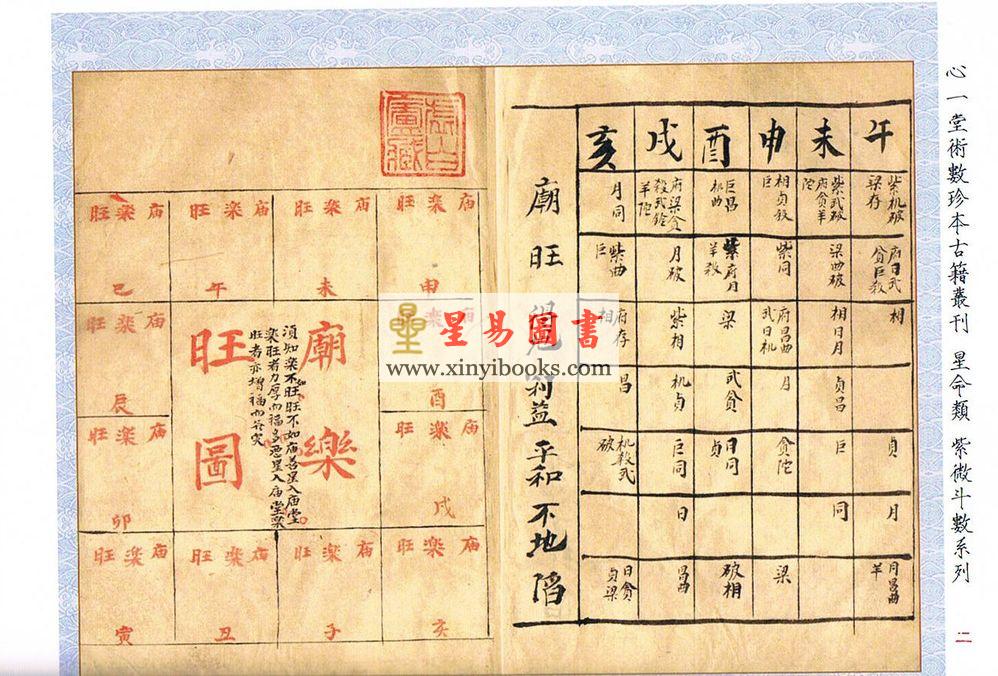 心一堂術數珍本古籍叢刊 星命類 紫微斗數系列
二
午
紫机破
梁存
府日武
貪巨殺
相
貞
月
月昌曲
羊
未
紫武破
府貪羊
陀
梁曲破
相日月
貞昌
巨
同
申
相貞殺
巨
紫同
府昌曲
武日机
月
貪陀
梁
酉
巨昌
机曲
紫府月
羊殺
梁
武貪
日同
貞
破相
戌
府梁貪
殺武鈴
羊陀
月破
紫相
机貞
巨同
日
昌曲
亥
月同
紫曲
巨
府存
相
昌
机殺武
破
日貪
貞梁
廟旺 利益平和不地陷
星易圖書
www.xinyibooks.com
虛白廬藏
庙楽旺
申
庙楽旺
未
庙楽旺
午
庙楽旺
巳
庙楽旺
酉
庙楽旺
辰
庙楽旺
戌
庙楽旺
卯
庙楽旺
亥
庙楽旺
子
庙楽旺
丑
庙楽旺
寅
廟樂
旺圖
須知楽不如旺旺不如庙善星入庙堂
楽旺者力厚而福多悪星入庙堂楽
旺者亦增福而 災